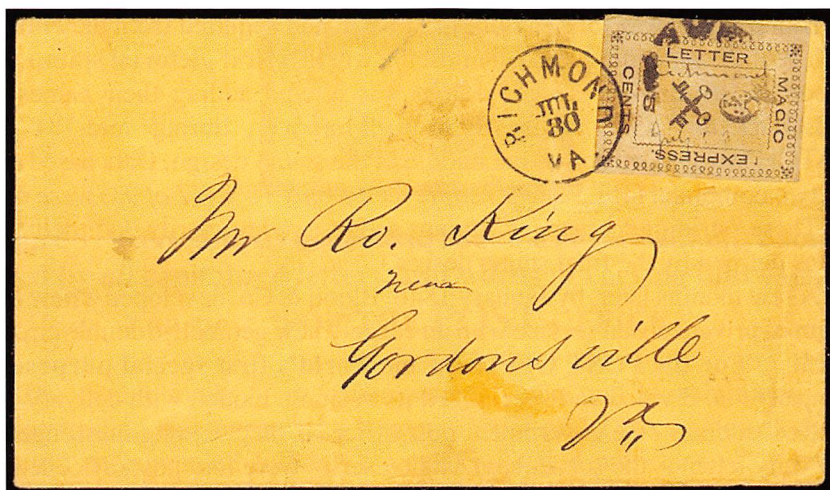 RICHMOND
JUL
30
VA.
LETTER
MAGIC
EXPRESS.
CENTS
5
Richmond
July
Mr Ro. King
near
Gordonsville
Va